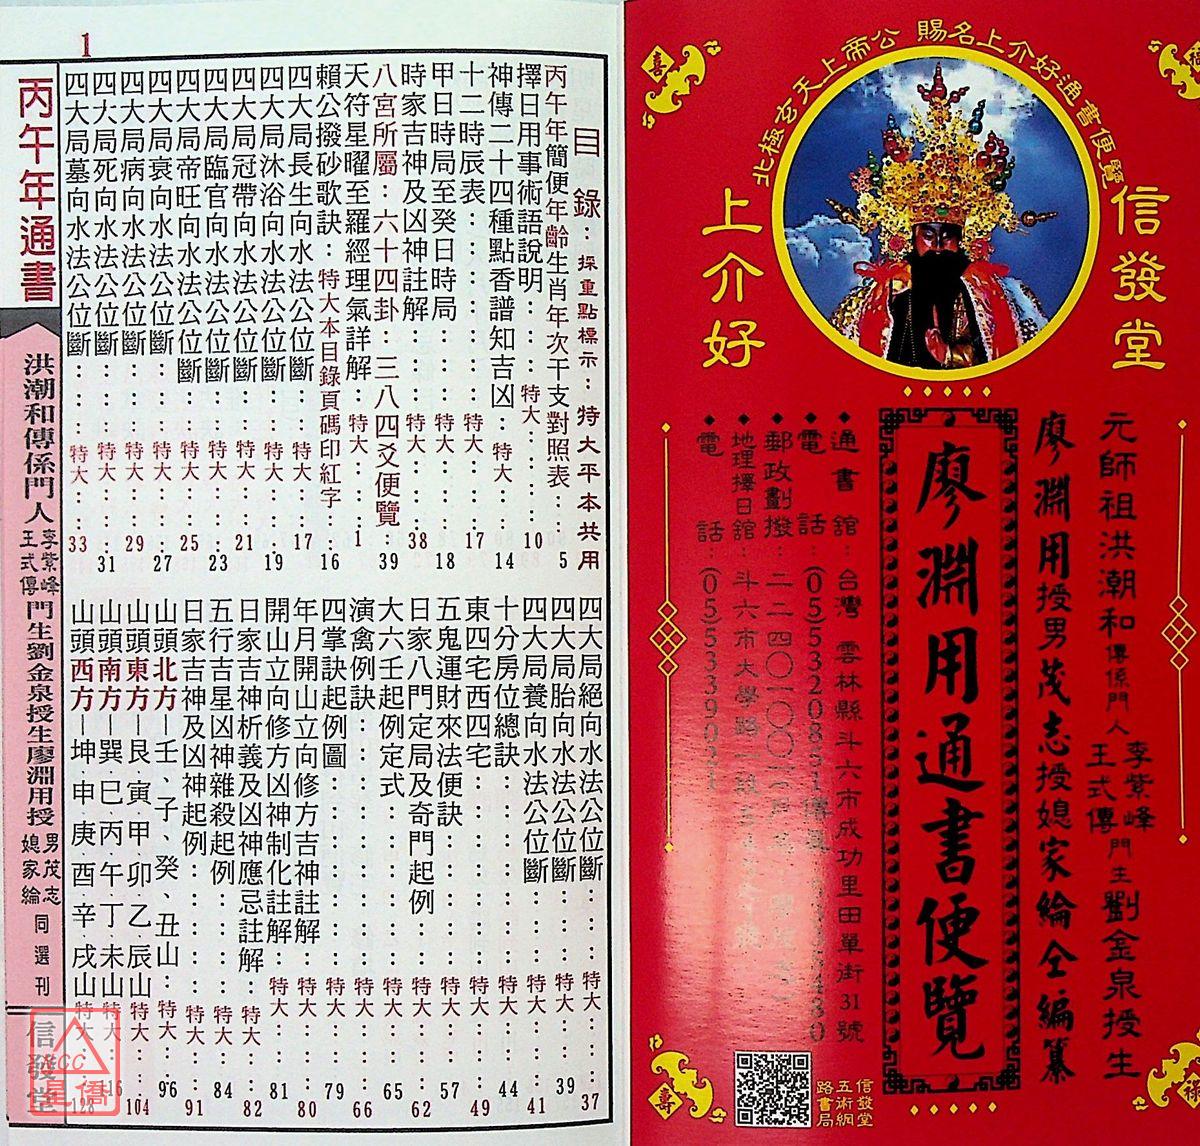 北極玄天上帝公 賜名上介好通書便覽
信發堂
上介好
元師祖洪潮和傳係門人李紫峰王式傳門生劉金泉授生
廖淵用授男茂志授媳家綸仝編纂
廖淵用通書便覽
通書館：台灣雲林縣斗六市成功里田單街31號
電話：(05)5320851
郵政劃撥：二二四〇一〇〇
地理擇日館：斗六市大學路
電話：(05)5339021
信發堂
五術網
路書局
1
目錄：採重點標示：特大平本共用
丙午年簡便年齡生肖年次干支對照表：5
擇日用事術語說明：特大：10
神傳二十四種點香譜知吉凶：特大：14
十二時辰表：特大：17
甲日時局至癸日時局：特大：18
時家吉神及凶神註解：特大：38
八宮所屬：六十四卦：三八四爻便覽 39
天符星曜至羅經理氣詳解：特大：1
賴公撥砂歌訣：特大本目錄頁碼印紅字：16
四大局長生向水法公位斷：特大：17
四大局沐浴向水法公位斷：特大：19
四大局冠帶向水法公位斷：特大：21
四大局臨官向水法公位斷：特大：23
四大局帝旺向水法公位斷：特大：25
四大局衰向水法公位斷：特大：27
四大局病向水法公位斷：特大：29
四大局死向水法公位斷：特大：31
四大局墓向水法公位斷：特大：33
四大局絕向水法公位斷：特大：37
四大局胎向水法公位斷：特大：39
四大局養向水法公位斷：特大：41
十分房位總訣：特大：44
東四宅西四宅：特大：49
五鬼運財來法便訣：特大：57
日家八門定局及奇門起例：特大：62
大六壬起例定式：特大：65
演禽例訣：特大：66
四掌訣起例圖：特大：79
年月開山立向修方吉神註解：特大：80
開山立向修方凶神制化註解：特大：81
日家吉神析義及凶神應忌註解：特大：82
五行吉星凶神雜殺起例：特大：84
日家吉神及凶神起例：特大：91
山頭北方－壬、子、癸、丑山：特大：96
山頭東方－艮寅甲卯乙辰山：特大：104
山頭南方－巽巳丙午丁未山：特大：116
山頭西方－坤申庚酉辛戌山：特大：128
丙午年通書
洪潮和傳係門人李紫峰王式傳門生劉金泉授生廖淵用授男茂志媳家綸同選刊
信發堂
星僑